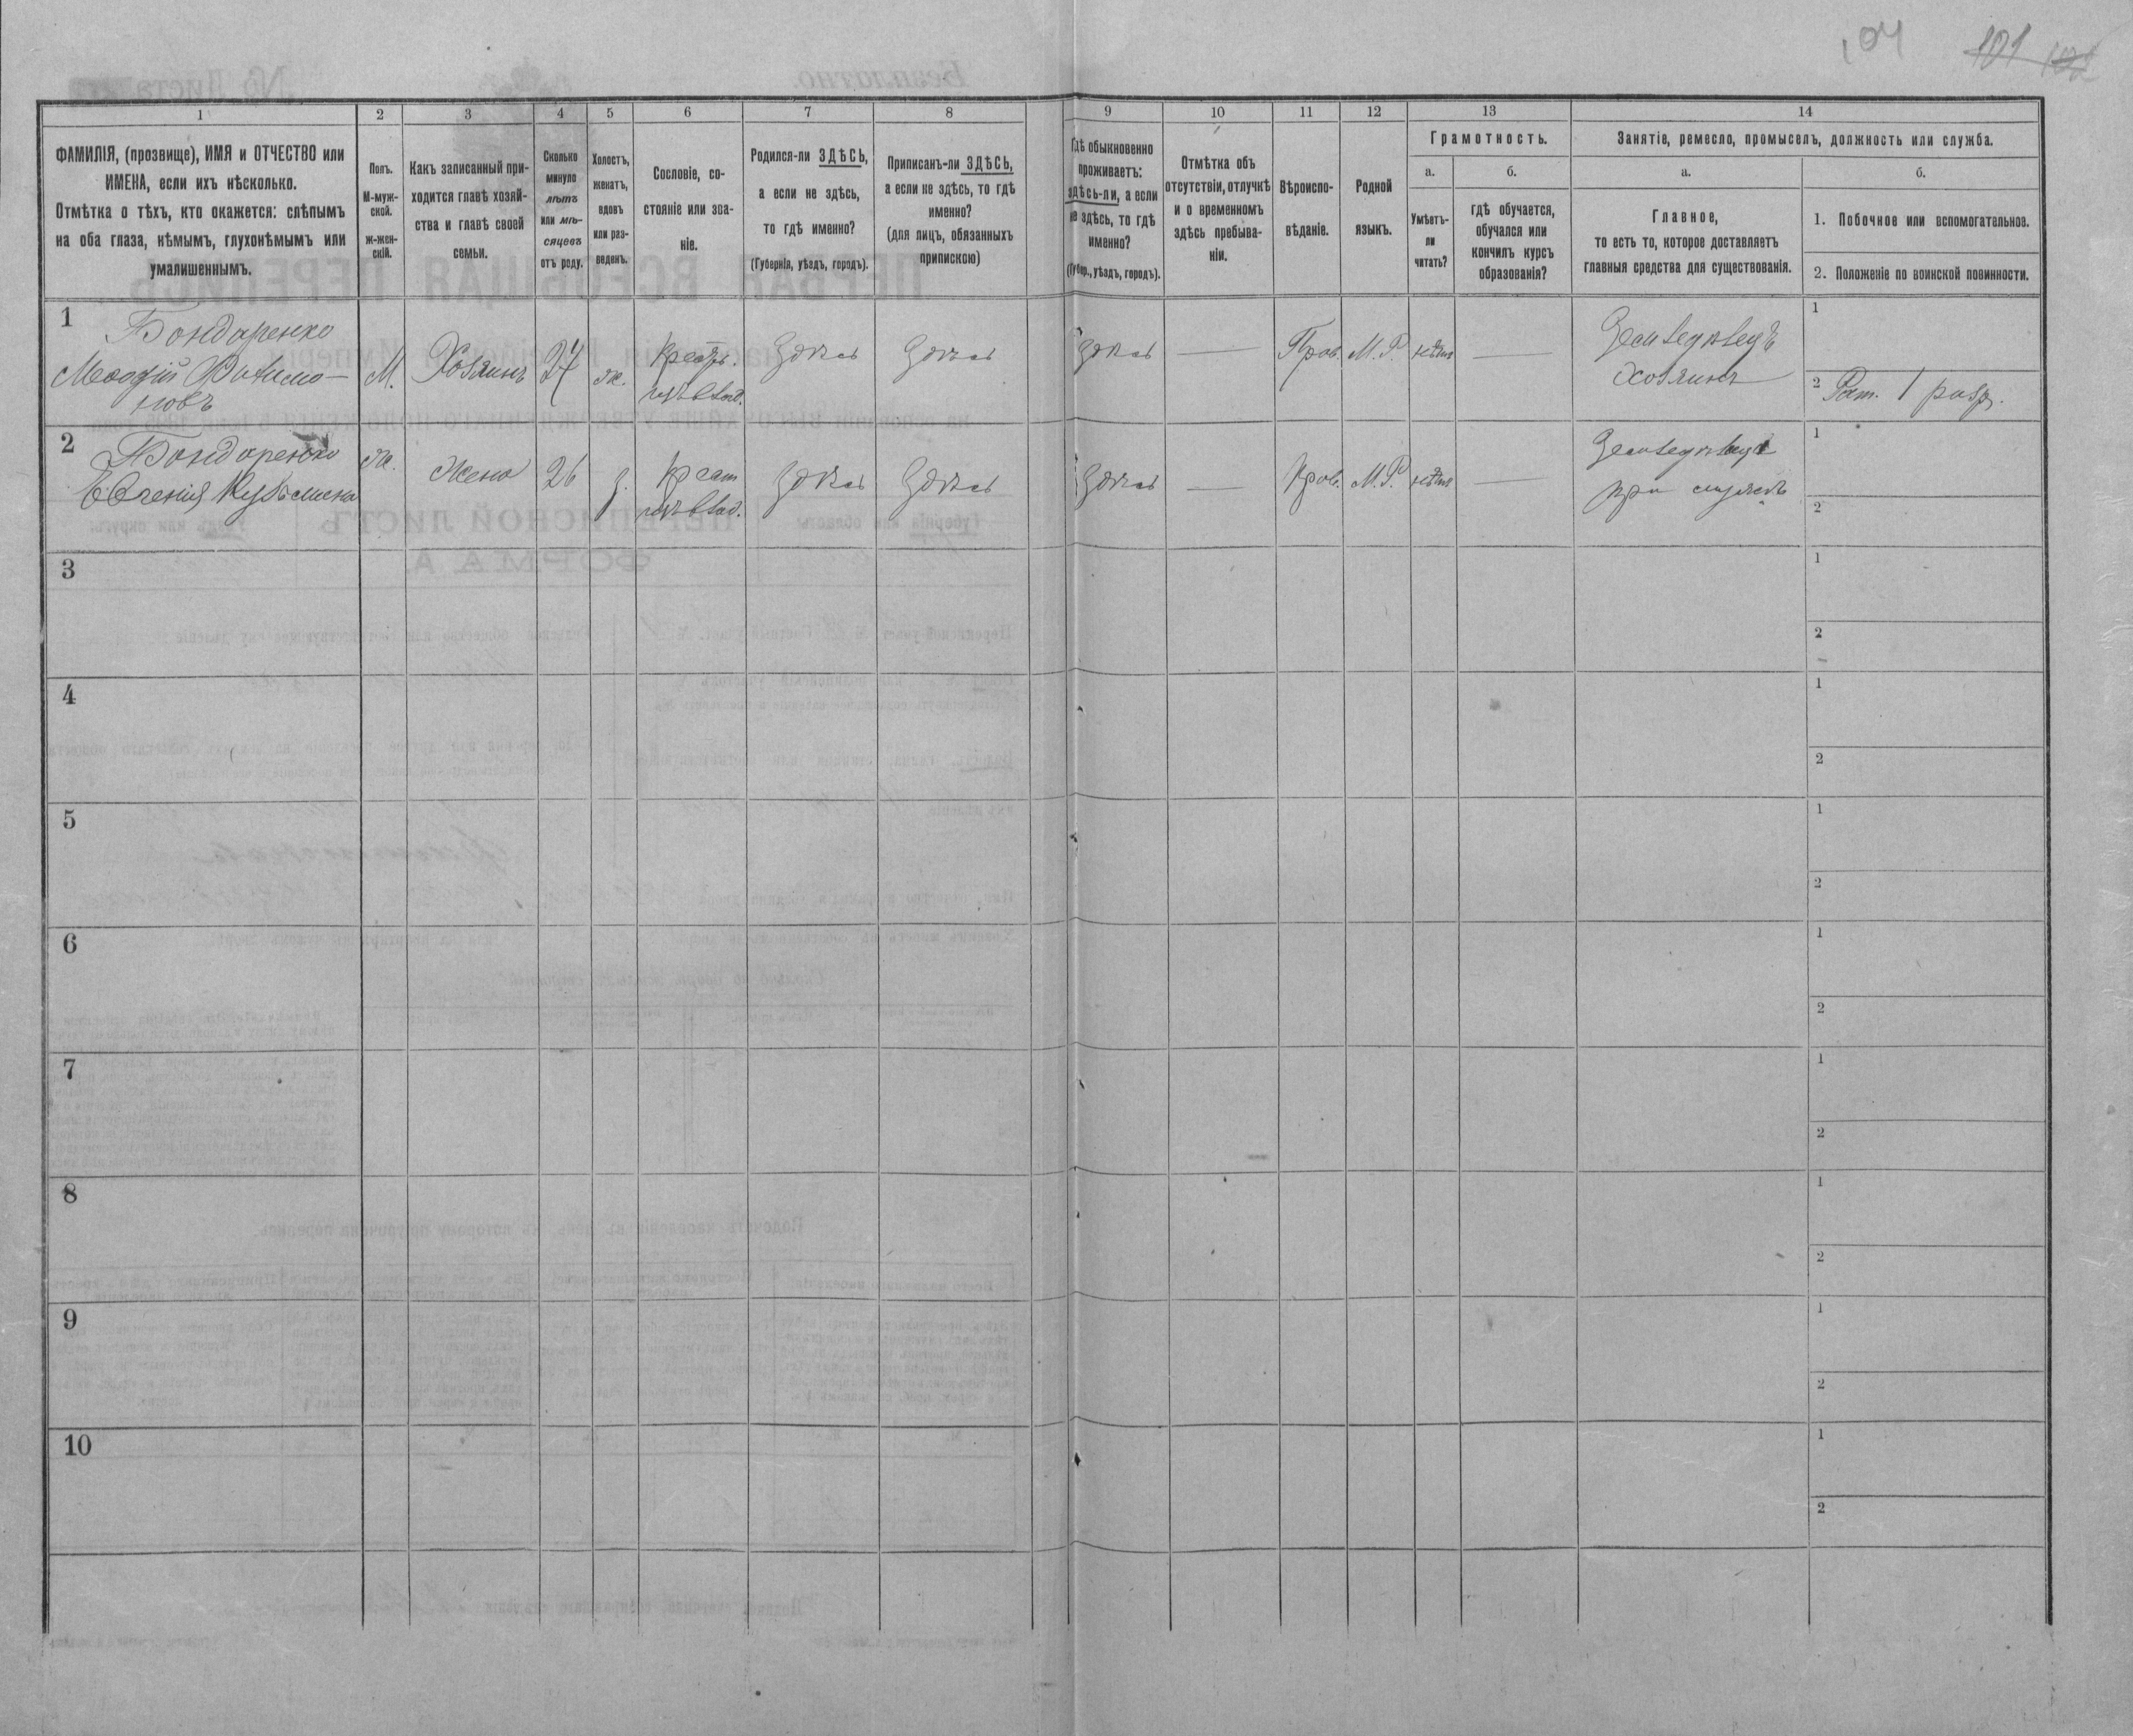 104 101
1 2 3 4 5 6 7 8 9 10 11 12 13 14
ФАМИЛІЯ, (прозвище), ИМЯ и ОТЧЕСТВО или
ИМЕНА, если ихъ нѣсколько.
Отмѣтка о тѣхъ, кто окажется: слѣпымъ
на оба глаза, нѣмымъ, глухонѣмымъ или
умалишеннымъ.
Полъ.
М-муж-
ской.
ж-жен-
скій.
Какъ записанный при-
ходится главѣ хозяй-
ства и главѣ своей
семьи.
Сколько
минуло
лѣтъ
или мѣ-
сяцевъ
отъ роду.
Холостъ,
женатъ,
вдовъ
или раз-
веденъ.
Сословіе, со-
стояніе или зва-
ніе.
Родился-ли ЗДѢСЬ,
а если не здѣсь,
то гдѣ именно?
(Губернія, уѣздъ, городъ).
Приписанъ-ли ЗДѢСЬ,
а если не здѣсь, то гдѣ
именно?
(для лицъ, обязанныхъ
припискою)
Гдѣ обыкновенно
проживаетъ:
здѣсь-ли, а если
не здѣсь, то гдѣ
именно?
(Губер., уѣздъ, городъ).
Отмѣтка объ
отсутствіи, отлучкѣ
и о временномъ
здѣсь пребыва-
ніи.
Вѣроиспо-
вѣданіе.
Родной
языкъ.
Грамотность.
а.
Умѣетъ-
ли
читать?
б.
гдѣ обучается,
обучался или
кончилъ курсъ
образованія?
Занятіе, ремесло, промыселъ, должность или служба.
а.
Главное,
то есть то, которое доставляетъ
главныя средства для существованія.
б.
1. Побочное или вспомогательное.
2. Положеніе по воинской повинности.
1
Бондаренко
Меѳодій Филимо-
новъ
М.
Хозяинъ
27
ж.
Крест.
Здѣсь
Здѣсь
Здѣсь
—
Прав.
М. Р.
нѣтъ
—
Хозяинъ
1
2 Рат. 1 разр.
2
Бондаренко
Евгенія Кузьмина
ж.
Жена
26
з.
Крест
Здѣсь
Здѣсь
Здѣсь
—
Прав.
М. Р.
нѣтъ
—
при мужѣ
1
2
3 1
2
4 1
2
5 1
2
6 1
2
7 1
2
8 1
2
9 1
2
10 1
2